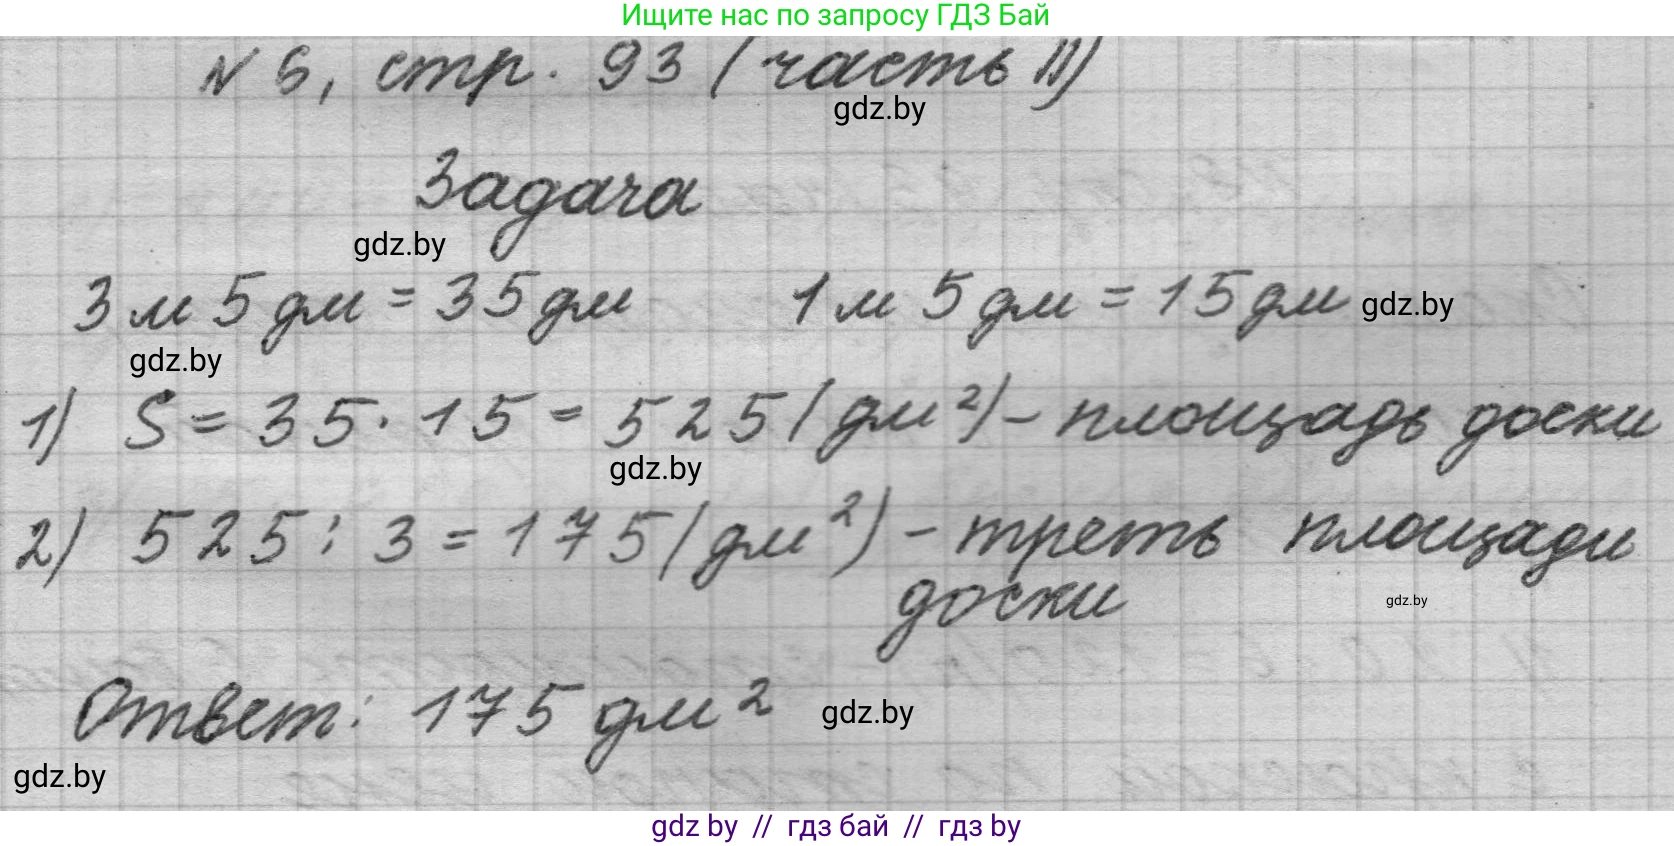 Ищите нас по запросу ГДЗ Бай
N 6, стр. 93 (часть II)
gdz.by
Задача
gdz.by
3 м 5 дм = 35 дм 1 м 5 дм = 15 дм gdz.by
gdz.by
1) S = 35 · 15 = 525 (дм²) – площадь доски
gdz.by
2) 525 : 3 = 175 (дм²) – треть площади
доски
gdz.by
Ответ: 175 дм² gdz.by
gdz.by
gdz by // гдз бай // гдз by